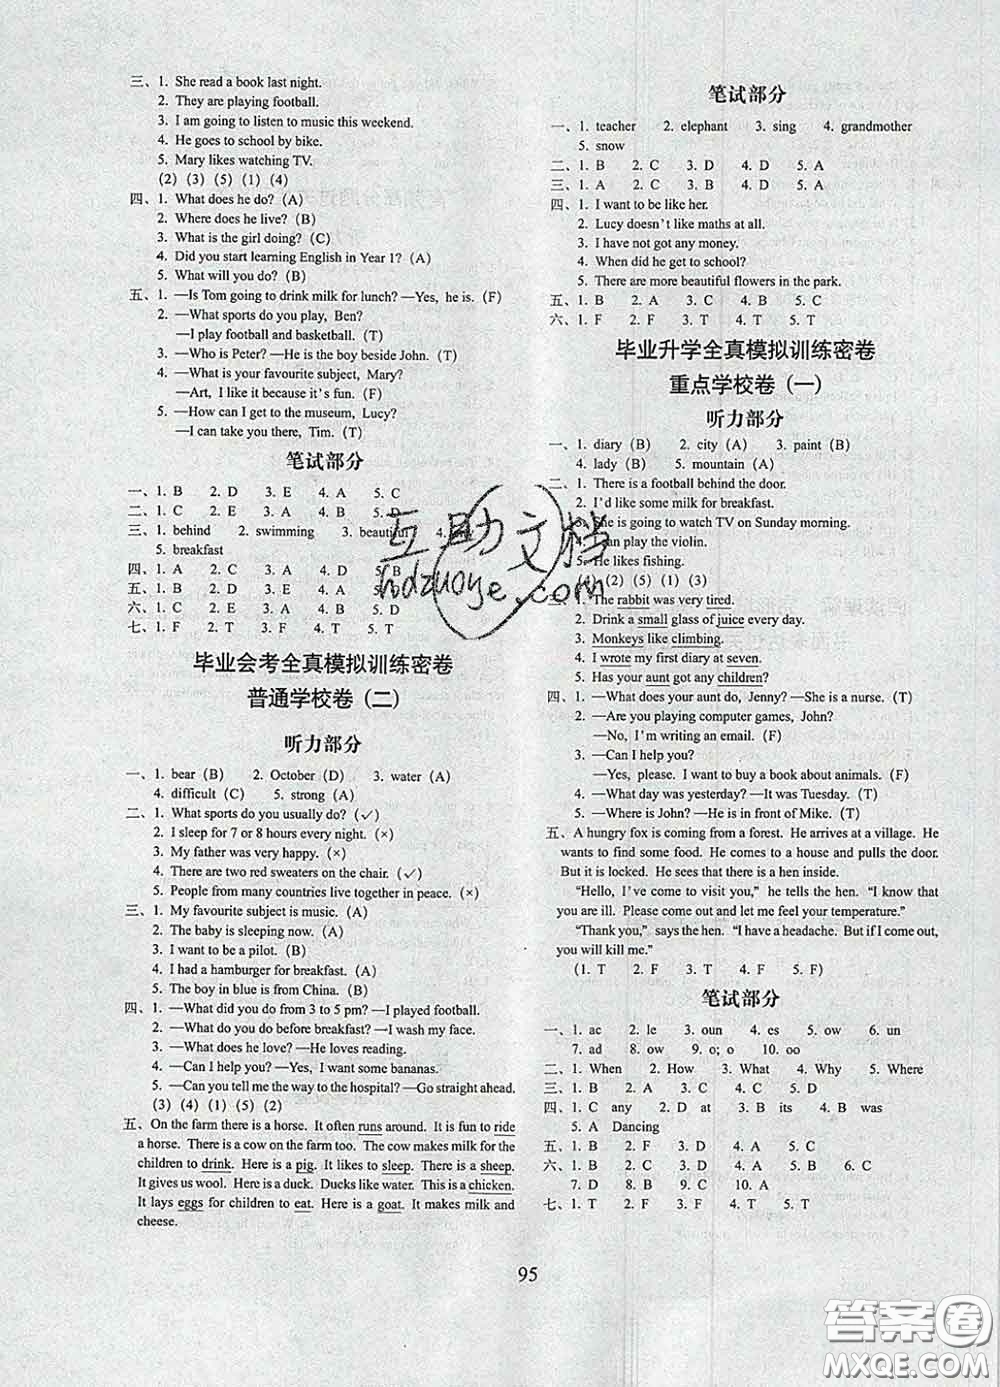 三、1. She read a book last night.
2. They are playing football.
3. I am going to listen to music this weekend.
4. He goes to school by bike.
5. Mary likes watching TV.
(2) (3) (5) (1) (4)
四、1. What does he do? (A)
2. Where does he live? (B)
3. What is the girl doing? (C)
4. Did you start learning English in Year 1? (A)
5. What will you do? (B)
五、1. —Is Tom going to drink milk for lunch? —Yes, he is. (F)
2. —What sports do you play, Ben?
—I play football and basketball. (T)
3. —Who is Peter? —He is the boy beside John. (T)
4. —What is your favourite subject, Mary?
—Art, I like it because it's fun. (F)
5. —How can I get to the museum, Lucy?
—I can take you there, Tim. (T)
笔试部分
一、1. B 2. D 3. E 4. A 5. C
二、1. C 2. E 3. A 4. B 5. D
三、1. behind 2. swimming 3. beautiful 4.
5. breakfast
四、1. A 2. C 3. A 4. D 5. B
五、1. B 2. D 3. A 4. C 5. B
六、1. C 2. E 3. B 4. D 5. A
七、1. F 2. T 3. F 4. T 5. T
毕业会考全真模拟训练密卷
普通学校卷 (二)
听力部分
一、1. bear (B) 2. October (D) 3. water (A)
4. difficult (C) 5. strong (A)
二、1. What sports do you usually do? (✓)
2. I sleep for 7 or 8 hours every night. (×)
3. My father was very happy. (×)
4. There are two red sweaters on the chair. (✓)
5. People from many countries live together in peace. (×)
三、1. My favourite subject is music. (A)
2. The baby is sleeping now. (A)
3. I want to be a pilot. (B)
4. I had a hamburger for breakfast. (A)
5. The boy in blue is from China. (B)
四、1. —What did you do from 3 to 5 pm? —I played football.
2. —What do you do before breakfast? —I wash my face.
3. —What does he love? —He loves reading.
4. —Can I help you? —Yes, I want some bananas.
5. —Can you tell me the way to the hospital? —Go straight ahead.
(3) (4) (1) (5) (2)
五、On the farm there is a horse. It often runs around. It is fun to ride
a horse. There is a cow on the farm too. The cow makes milk for the
children to drink. Here is a pig. It likes to sleep. There is a sheep.
It gives us wool. Here is a duck. Ducks like water. This is a chicken.
It lays eggs for children to eat. Here is a goat. It makes milk and
cheese.
笔试部分
一、1. teacher 2. elephant 3. sing 4. grandmother
5. snow
二、1. B 2. C 3. D 4. D 5. A
三、1. A 2. C 3. B 4. D 5. A
四、1. I want to be like her.
2. Lucy doesn't like maths at all.
3. I have not got any money.
4. When did he get to school?
5. There are more beautiful flowers in the park.
五、1. B 2. A 3. C 4. B 5. C
六、1. F 2. F 3. T 4. T 5. T
毕业升学全真模拟训练密卷
重点学校卷 (一)
听力部分
一、1. diary (B) 2. city (A) 3. paint (B)
4. lady (B) 5. mountain (A)
二、1. There is a football behind the door.
2. I'd like some milk for breakfast.
She is going to watch TV on Sunday morning.
can play the violin.
5. He likes fishing.
(2) (5) (1) (3)
1. The rabbit was very tired.
2. Drink a small glass of juice every day.
3. Monkeys like climbing.
4. I wrote my first diary at seven.
5. Has your aunt got any children?
四、1. —What does your aunt do, Jenny? —She is a nurse. (T)
2. —Are you playing computer games, John?
—No, I'm writing an email. (F)
3. —Can I help you?
—Yes, please. I want to buy a book about animals. (F)
4. —What day was yesterday? —It was Tuesday. (T)
5. —Where is John? —He is in front of Mike. (T)
五、A hungry fox is coming from a forest. He arrives at a village. He
wants to find some food. He comes to a house and pulls the door.
But it is locked. He sees that there is a hen inside.
"Hello, I've come to visit you," he tells the hen. "I know that
you are ill. Please come out and let me feel your temperature."
"Thank you," says the hen. "I have a headache. But if I come out,
you will kill me."
(1. T 2. F 3. T 4. F 5. F)
笔试部分
一、1. ac 2. le 3. oun 4. es 5. ow 6. un
7. ad 8. ow 9. o; o 10. oo
二、1. When 2. How 3. What 4. Why 5. Where
三、1. B 2. A 3. C 4. C 5. D
四、1. C any 2. D at 3. B its 4. B was
5. A Dancing
五、1. B 2. F 3. D 4. A 5. C
六、1. B 2. C 3. D 4. A 5. B 6. C
7. D 8. B 9. C 10. A
七、1. T 2. F 3. F 4. T 5. T
95
互助文档
hdzuoye.com
答案圈
MXQE.COM